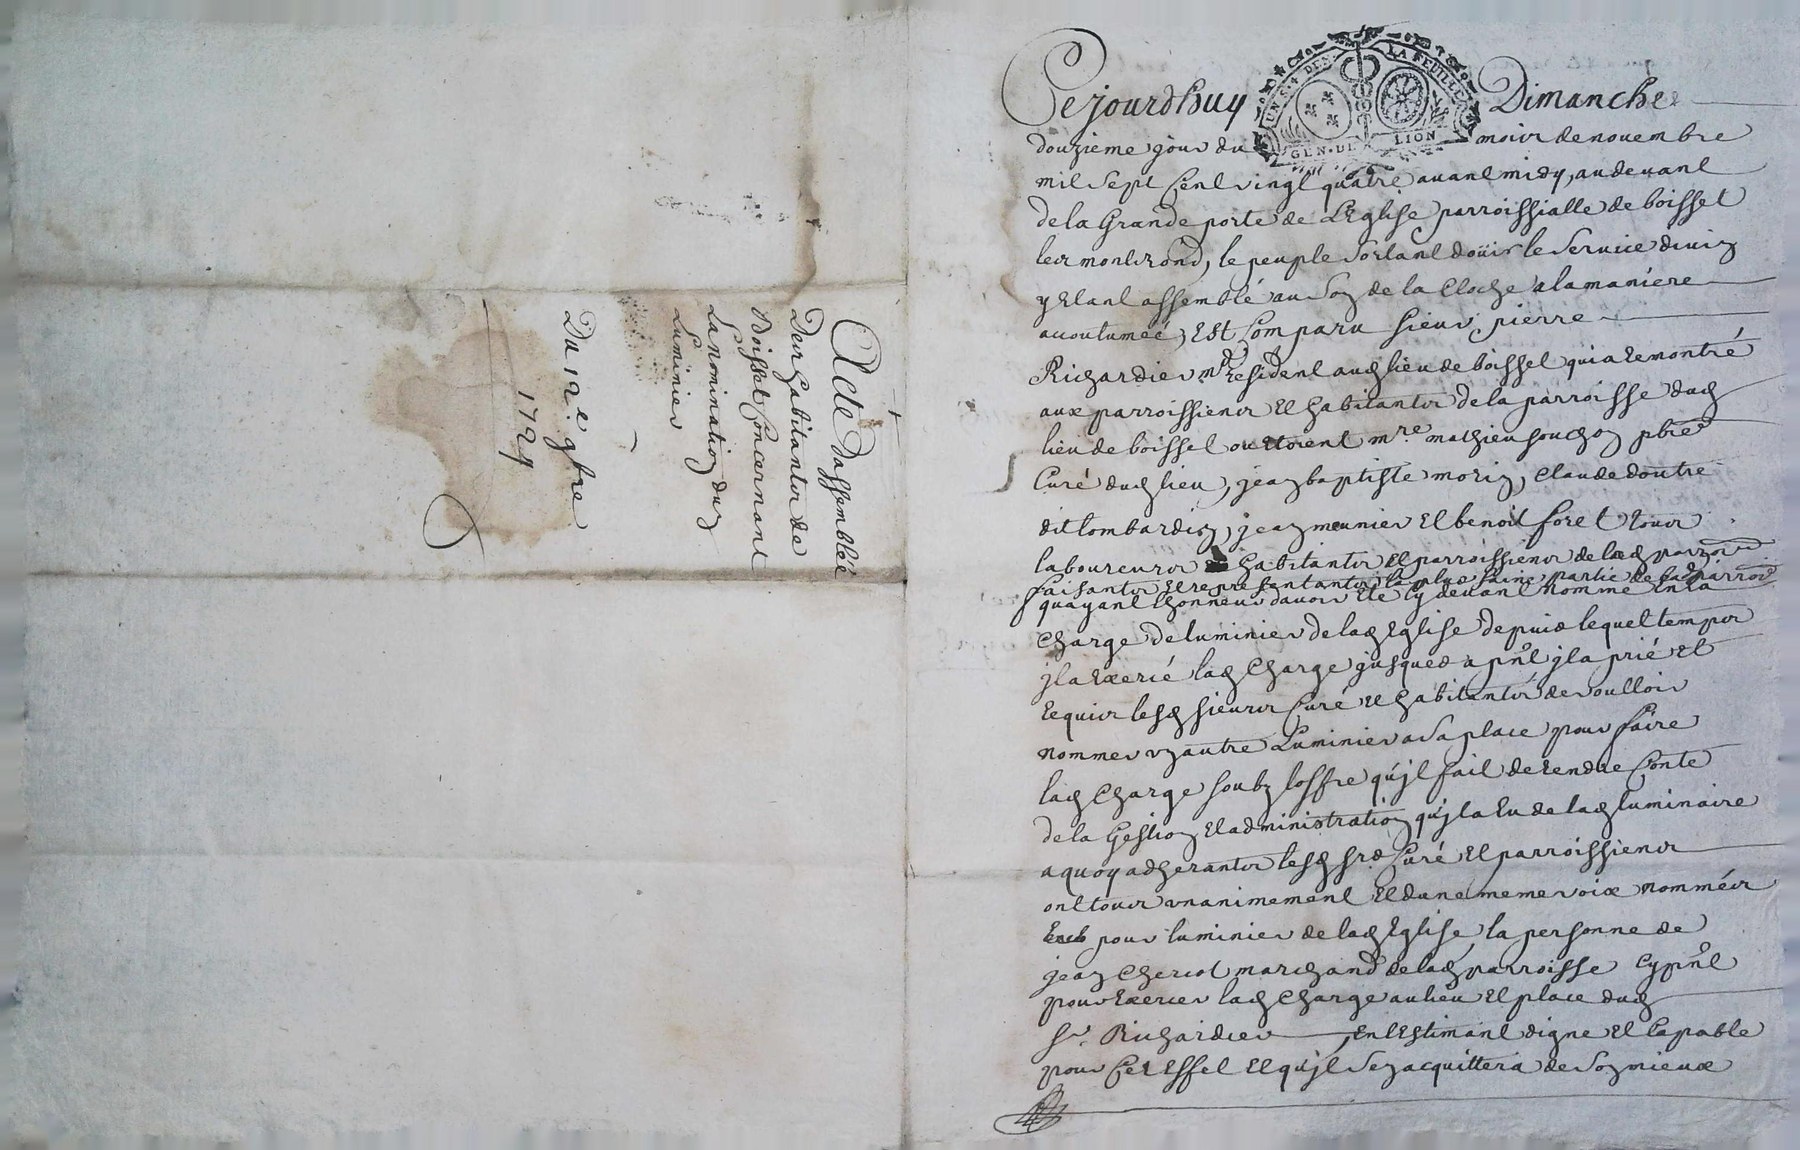 Acte dassemblée
Des habitants de
Boisset Concernant
La nomination dun
Luminier
Du 12e 9bre
1724
UN S. 4 DEN. LA FEUILLE
GEN. DE LION
Cejourdhuy Dimanche
douzieme jour du mois de novembre
mil sept Cent vingt quatre avant midy, au devant
de la Grande porte de LEglise parroissialle de boisset
les montrond, le peuple sortant douïr le service divin
y Etant assemblé au son de la Cloche a la maniere
accoutumeé, Est Comparu sieur pierre
Richardier md résident audt lieu de boisset qui a remontré
aux parroissiens Et habitants de la parroisse dudt
lieu de boisset ou Etoient mre mathieu souchon pbre
Curé dudt lieu, jean baptiste morin, Claude doutre
dit lombardin, jean meunier Et benoit foret tous
laboureurs habitants Et parroissiens de ladt parroisse
faisants Et representants la plus saine partie de ladt parroisse
quayant Lhonneur davoir Eté Cy devant nommé En la
Charge de luminier de ladt Eglise depuis lequel temps
jl a Exercé ladt Charge jusques a pnt jl a prié Et
requis lesdt sieurs Curé Et habitants de voulloir
nommer un autre Luminier a sa place pour faire
ladt Charge soubz loffre qu'jl fait de rendre Conte
de la Gestion Et administration qu'jl a Eu de ladt luminaire
a quoy adherants lesdt srs Curé Et parroissiens
ont tous unanimement Et dune meme voix nommés
pour luminier de ladt Eglise, la personne de
jean Chercot marchand de ladt parroisse Cy pnt
pour Exercer ladt Charge au lieu Et place dudt
Sr. Richardier, En lEstimant digne Et Capable
pour Cet Effet Et qu'jl sen acquittera de son mieux